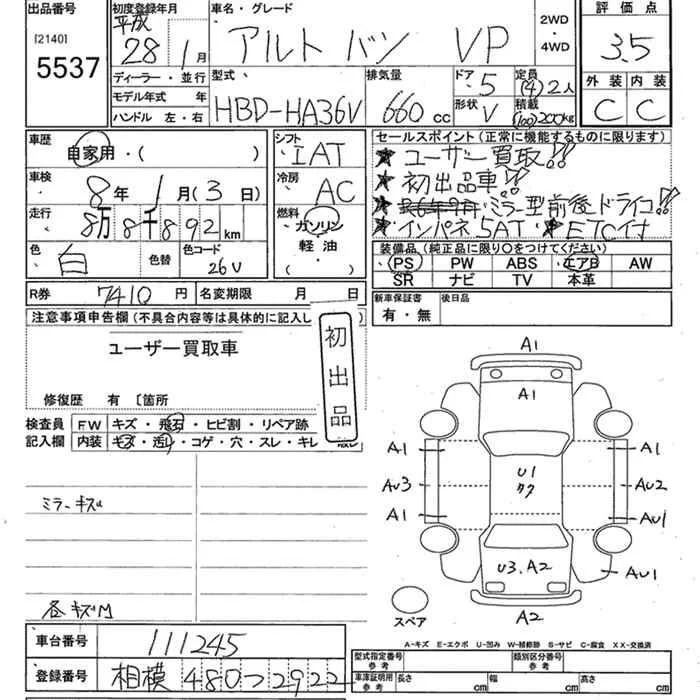 出品番号
[2140]
5537
初度登録年月
平成
28年 1月
ディーラー・並行
モデル年式 年
ハンドル 左・右
車名・グレード
アルト バン VP
2WD
・
4WD
評価点
3.5
型式
HBD-HA36V
排気量
660 cc
ドア
5
形状
V
定員
(4) 2人
積載
(100) 200kg
外装 内装
C C
車歴
自家用・( )
車検
8年 1月(3日)
走行
8万8千892km
色
白
色替
色コード
26U
シフト
IAT
冷房
AC
燃料
ガソリン
軽油
( )
セールスポイント(正常に機能するものに限ります)
★ユーザー買取!!
★初出品車!!
★ミラー型前後ドライコ!!
★インパネ5AT・★ETC付
装備品(純正品に限り○をつけてください)
PS PW ABS エアB AW
SR ナビ TV 本革
R券 7410円 名変期限 月 日
新車保証書
有・無
後日品
注意事項申告欄(不具合内容等は具体的に記入し
ユーザー買取車
修復歴 有 〔箇所
初出品
検査員
記入欄
FW キズ・飛石・ヒビ割・リペア跡
内装 キズ・汚れ・コゲ・穴・スレ・キレ
ミラーキズ
各キズM
A1
A1
A1 A1
AU3 U1 AU2
タク
A1 AU1
U3.A2 AU1
A2
スペア
A-キズ E-エクボ U-凹み W-補修跡 S-サビ C-腐食 XX-交換済
車台番号 111245
登録番号 相模 480つ2922
型式指定番号
参考
類別区分番号
参考
車庫証明用
参考
長さ cm 幅 cm 高さ cm